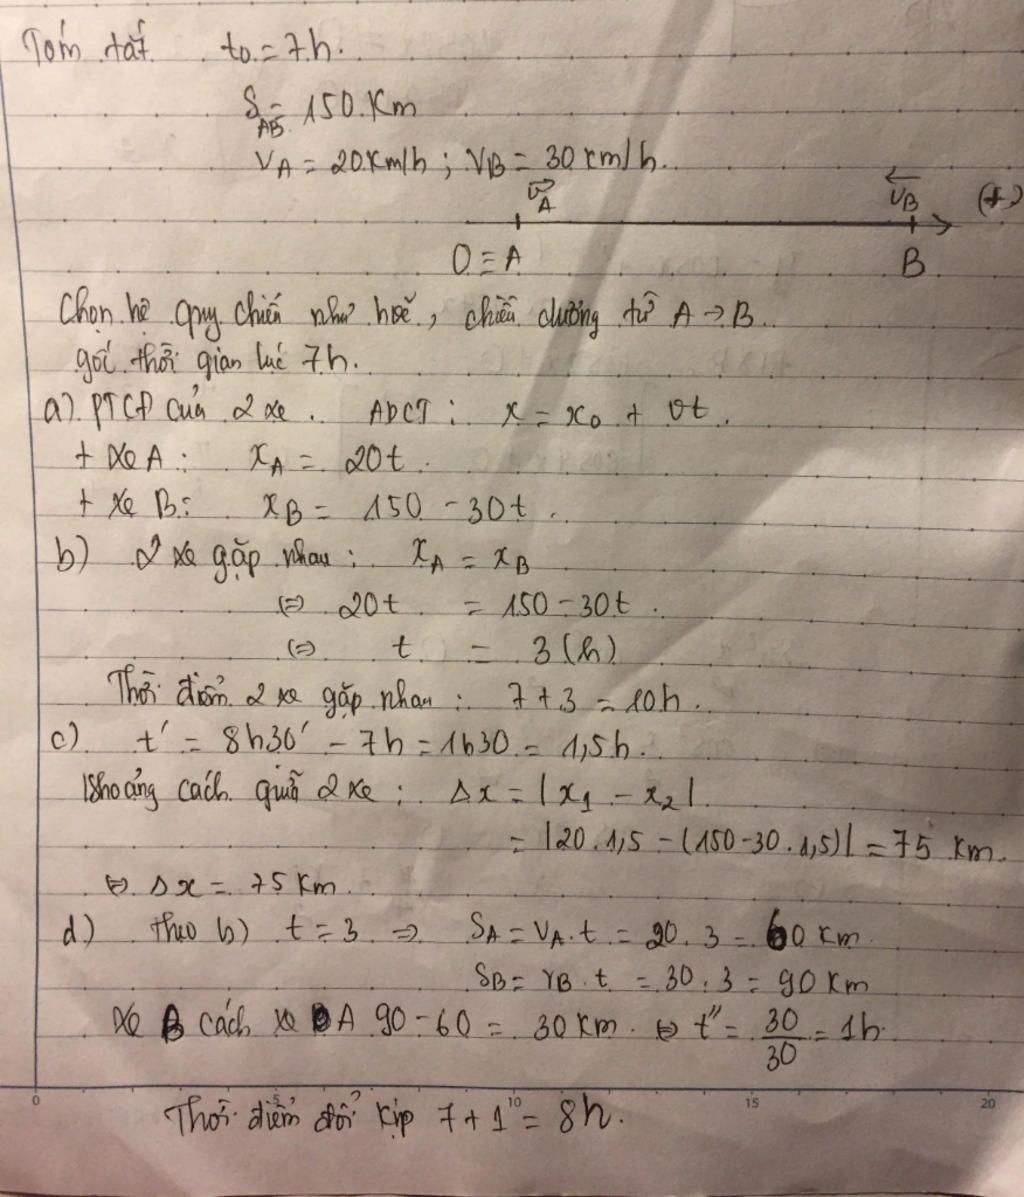 Tóm tắt t₀ = 7h.
S_AB = 150 Km
V_A = 20 Km/h ; V_B = 30 km/h.
v_A v_B (+)
O ≡ A B
Chọn hệ quy chiếu như hvẽ, chiều dương từ A → B
gốc thời gian lúc 7h.
a) PTCĐ của 2 xe. ADCT : x = x₀ + vt.
+ Xe A : x_A = 20t.
+ Xe B : x_B = 150 - 30t.
b) 2 xe gặp nhau : x_A = x_B
(=) 20t = 150 - 30t.
(=) t = 3 (h)
Thời điểm 2 xe gặp nhau : 7 + 3 = 10h.
c) t' = 8h30' - 7h = 1h30 = 1,5h.
Khoảng cách giữa 2 xe : Δx = |x₁ - x₂|.
= |20.1,5 - (150-30.1,5)| = 75 Km.
⇔ Δx = 75 Km.
d) theo b) t = 3 ⇒ S_A = V_A.t = 20.3 = 60 Km.
S_B = V_B.t = 30.3 = 90 Km
Xe B cách xe A 90 - 60 = 30 Km. ⇔ t'' = 30/30 = 1h.
0 5 10 15 20
Thời điểm đuổi kịp 7 + 1 = 8h.